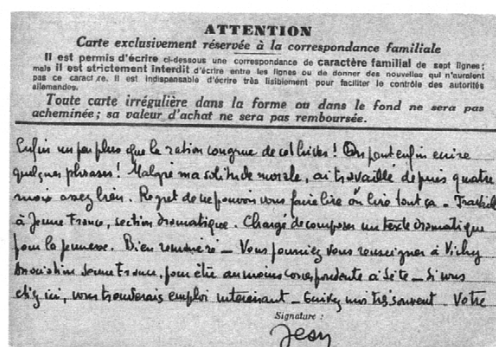 ATTENTION
Carte exclusivement réservée à la correspondance familiale
Il est permis d'écrire ci-dessous une correspondance de caractère familial de sept lignes;
mais il est strictement interdit d'écrire entre les lignes ou de donner des nouvelles qui n'auraient
pas ce caractère. Il est indispensable d'écrire très lisiblement pour faciliter le contrôle des autorités
allemandes.
Toute carte irrégulière dans la forme ou dans le fond ne sera pas
acheminée; sa valeur d'achat ne sera pas remboursée.
Enfin un peu plus que la ration congrue de ! On peut enfin écrire
quelques phrases! Malgré ma solitude morale, ai travaillé depuis quatre
mois assez bien. Regret de ne pouvoir vous faire lire ou lire tout ça - Travaille
à Jeune France, section dramatique. Chargé de composer un texte dramatique
pour la jeunesse. Bien rémunéré - Vous pourriez vous renseigner à Vichy
Jeune France, pour être au moins correspondante à Sète - Si vous
étiez ici, vous trouveriez emploi intéressant - Ecrivez moi très souvent - Votre
Signature :
Jean